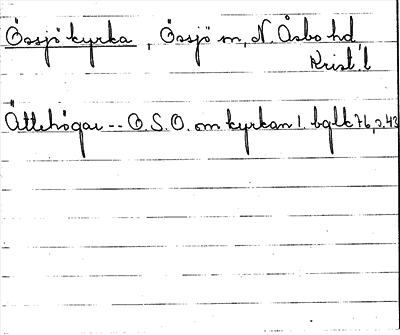 Össjö kyrka, Össjö sn, N. Åsbo hd
Krist. l
Ättehögar -- O.S.O. om kyrkan 1. bglk 76, s. 43